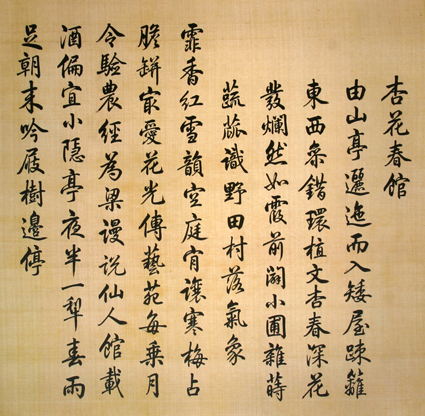 杏花春館
由山亭邐迤而入矮屋疎籬
東西叅錯環植文杏春深花
發爛然如霞前闢小圃雜蒔
蔬蓏識野田村落氣象
霏香紅雪韻空庭肯讓寒梅占
膽缾㝡愛花光傳藝苑每乘月
令驗農經為梁謾説仙人館載
酒偏宜小隱亭夜半一犂春雨
足朝来吟屐樹邊停